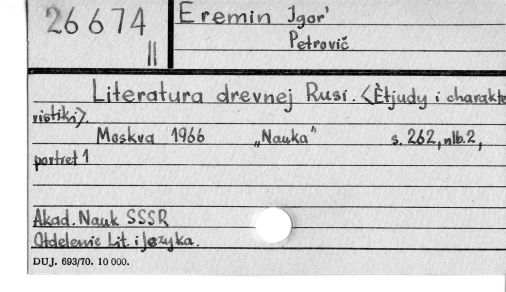 26674
II
Eremin Igor'
Petrovič
Literatura drevnej Rusi. <Ètjudy i charakte
ristiki>.
Moskva 1966 „Nauka" s. 262, nlb. 2,
portret 1
Akad. Nauk SSSR
Otdelenie Lit. i Jezyka.
DUJ. 693/70. 10 000.